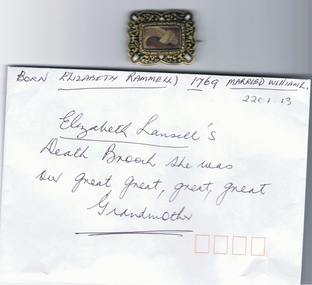 BORN ELIZABETH RAMMELL) 1769 MARRIED WILLIAM L.
2201 13
Elizabeth Lansell's
Death Brooch she was
our great great, great, great
Grandmother